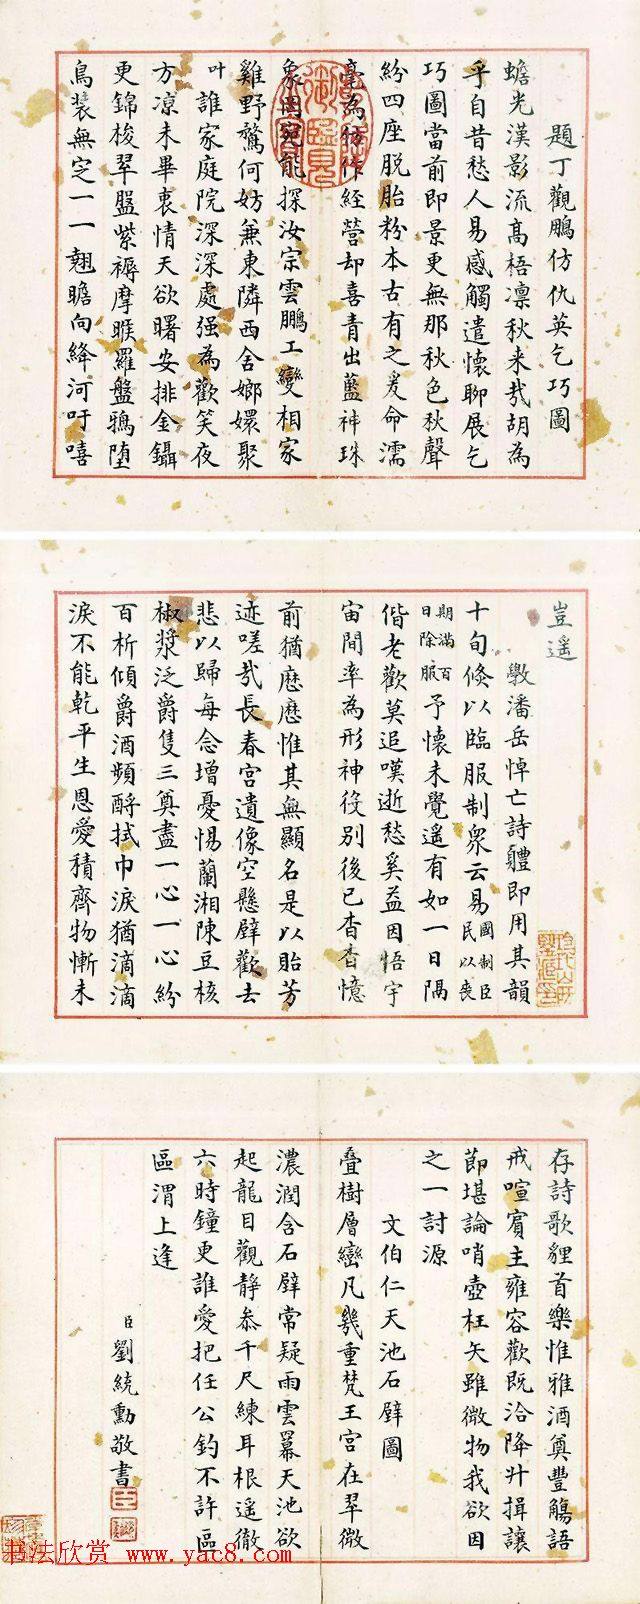 題丁觀鵬仿仇英乞巧圖
蟾光漢影流高梧凛秋来哉胡為
乎自昔愁人易感觸遣懷聊展乞
巧圖當前即景更無那秋色秋聲
紛四座脱胎粉本古有之爰命濡
毫為仿作経營却喜青出藍神珠
象罔宛能探汝宗雲鵬工變相家
雞野鶩何妨兼東隣西舍嫏嬛聚
叶誰家庭院深深處强為歡笑夜
方凉未畢衷情天欲曙安排金鑷
更錦梭翠盌紫褥摩睺羅盤鴉墮
鳥裝無定一一翹瞻向絳河吁嘻
豈遥
斆潘岳悼亡詩軆即用其韻
十旬倏以臨服制衆云易國制臣民以喪
期滿百日除服予懷未覺遥有如一日隔
偕老歡莫追嘆逝愁奚益因悟宇
宙間率為形神役别後已杳杳憶
前猶歷歷惟其無顯名是以貽芳
迹嗟哉長春宮遺像空懸壁歡去
悲以歸每念增憂惕蘭湘陳豆核
椒漿泛爵隻三奠盡一心一心紛
百析傾爵酒頻酹拭巾淚猶滴滴
淚不能乾平生恩愛積齊物慚未
存詩歌貍首樂惟雅酒奠豐觴語
戒喧賓主雍容歡既洽降升揖讓
節堪論哨壺枉矢雖微物我欲因
之一討源
文伯仁天池石壁圖
叠樹層巒凡幾重梵王宮在翠微
濃潤含石壁常疑雨雲羃天池欲
起龍目觀静叅千尺練耳根遥徹
六時鐘更誰愛把任公釣不許區
區渭上逢
臣劉統勳敬書
书法欣赏 www.yac8.com